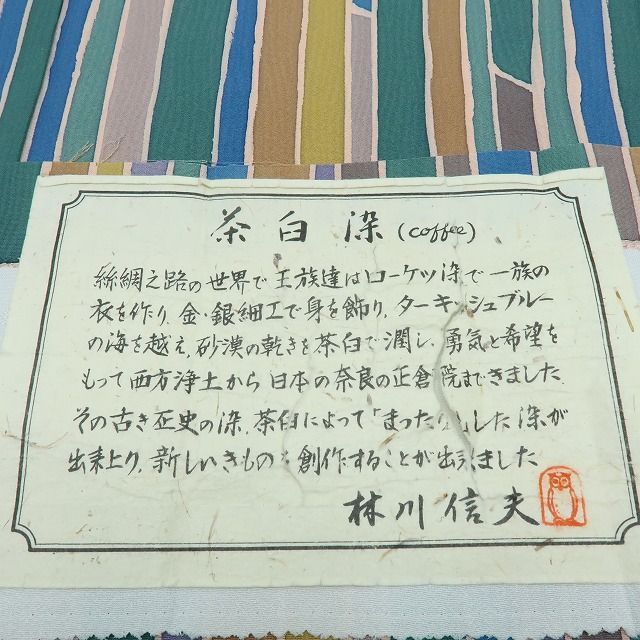 茶白染 (coffee)
絲綢之路の世界で王族達はローケツ染で一族の
衣を作り、金・銀細工で身を飾り、ターキッシュブルー
の海を越え、砂漠の乾きを茶白で潤し、勇気と希望を
もって西方浄土から日本の奈良の正倉院まできました
その古き正史の染、茶白によって「まったり」した染が
出来上り、新しいきものを創作することが出来ました
林川信夫